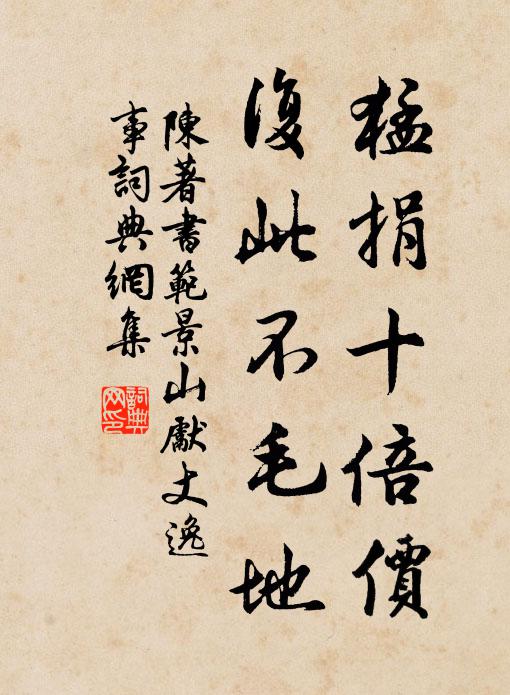 猛捐十倍價
復此不毛地
陳著書範景山獻丈逸
事詞典網集
詞典
网印